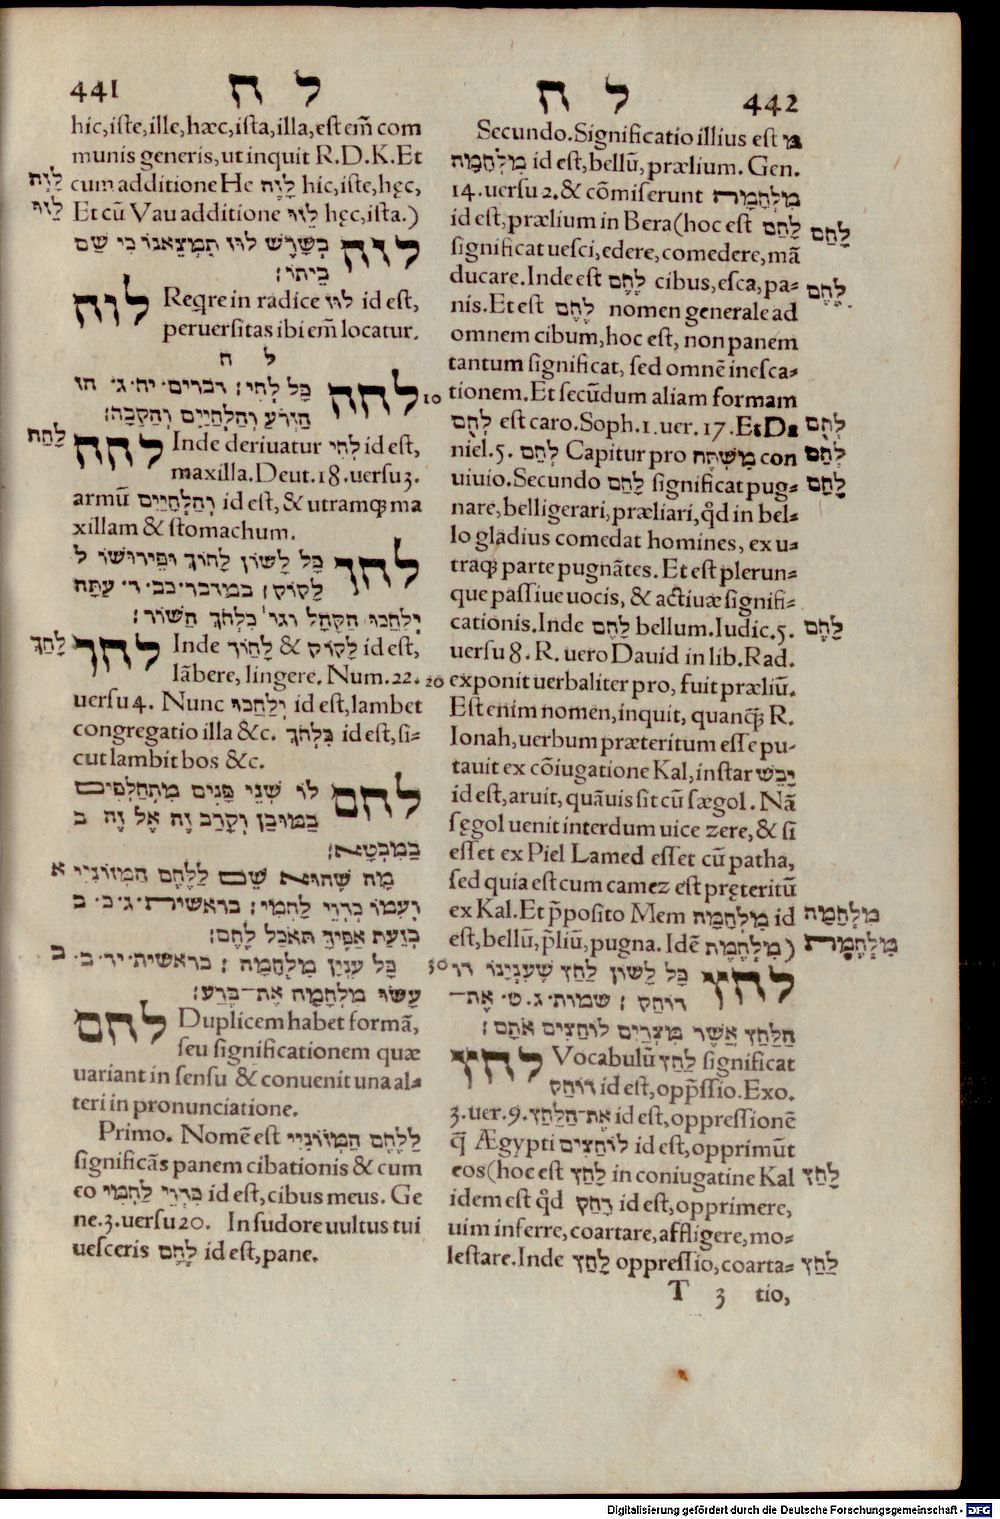 441 ל ח
hic,iste,ille,hæc,ista,illa,est em̃ com
munis generis,ut inquit R.D.K.Et
cum additione He לָזֶה hic,iste,hęc,
לָזֶה
Et cũ Vau additione לֵזוּ hęc,ista.)
לֵזוּ
לוח בְּשָׁרָשׁ לוּז תִּמְצָאֵנוּ כִּי שָׁם
בֵּיתוֹ׃
לוח Reqre in radice לוּז id est,
peruersitas ibi em̃ locatur.
ל ח
לחה כָּל לְחִי׃ דברים·יח·ג· הז
הַזְּרֹעַ וְהַלְּחָיַיִם וְהַקֵּבָה׃
לחה Inde deriuatur לְחִי id est,
לַחַת
maxilla.Deut.18.uersu 3.
armũ וְהַלְּחָיַיִם id est,& utramq; ma
xillam & stomachum.
לחך כָּל לָשׁוֹן לָחוֹךְ וּפֵירוּשׁוֹ ל
לַקוֹק׃ במידבר·כב·ד· עַתָּה
יְלַחֲכוּ הַקָּהָל וגו' כִּלְחֹךְ הַשּׁוֹר׃
לחך Inde לָחוֹךְ & לָקוֹק id est,
לָחַךְ
lãbere,lingere. Num.22.
uersu 4. Nunc יְלַחֲכוּ id est,lambet
congregatio illa &c. כִּלְחֹךְ id est,si-
cut lambit bos &c.
לחם לוֹ שְׁנֵי פָּנִים מִתְחַלְּפִים
בַּמּוּבָן וְקָרֵב זֶה אֶל זֶה ב
בַּמִּבְטָא׃
מָה שֶׁהוּא שֵׁם לַלֶּחֶם הַמְזוֹנִיִּי א
וָעַמוֹ בְּרְוֵי לַחְמִי׃ בראשית·ג·ב· ב
בְּזֵעַת אַפֶּיךָ תֹּאכַל לֶחֶם׃
כָּל עִנְיַן מִלְחָמָה ׃ בראשית·יד·ב· ב
עָשׂוּ מִלְחָמָה אֶת־בֶּרַע׃
לחם Duplicem habet formã,
seu significationem quæ
uariant in sensu & conuenit una al-
teri in pronunciatione.
Primo. Nomẽ est לַלֶּחֶם הַמְזוֹנִיִּי
significãs panem cibationis & cum
eo כִּדְוֵי לַחְמִי id est,cibus meus. Ge
ne.3.uersu 20. In sudore uultus tui
uesceris לֶחֶם id est,pane.
ל ח 442
Secundo.Significatio illius est מ
מִלְחָמָה id est,bellũ,prælium. Gen.
14.uersu 2.& cõmiserunt מִלְחָמָה
id est,prælium in Bera(hoc est לָחַם
לָחַם
significat uesci,edere,comedere,mã
ducare.Inde est לֶחֶם cibus,esca,pa-
לֶחֶם
nis.Et est לֶחֶם nomen generale ad
omnem cibum,hoc est, non panem
tantum significat, sed omnẽ inesca-
10 tionem.Et secũdum aliam formam
לְחֻם est caro.Soph.1.uer.17.Et Da
לְחֻם
niel.5. לְחֵם Capitur pro מִשְׁתֶּה con
לְחֵם
uiuio.Secundo לָחַם significat pug-
לָחַם
nare,belligerari,præliari,q̃d in bel-
lo gladius comedat homines, ex u-
traq; parte pugnãtes. Et est plerun-
que passiue uocis, & actiuæ signifi-
cationis.Inde לָחֶם bellum.Iudic.5.
לָחֶם
uersu 8. R. uero Dauid in lib. Rad.
20 exponit uerbaliter pro, fuit præliũ.
Est enim nomen,inquit, quanq̃; R.
Ionah,uerbum præteritum esse pu-
tauit ex cõiugatione Kal,instar יָבֵשׁ
id est,aruit, quãuis sit cũ sægol . Nã
sęgol uenit interdum uice zere, & si
esset ex Piel Lamed esset cũ patha,
sed quia est cum camez est pręteritũ
ex Kal.Et p̃posito Mem מִלְחָמָה id
מִלְחָמָה
est,bellũ,p̃liũ,pugna. Idẽ מִלְחֶמֶת )
מִלְחֶמֶת
30 לחץ כָּל לְשׁוֹן לַחַץ שֶׁעִנְיָנוֹ דו
דוֹחֵק ׃ שמות·ג·ט· אֶת־
הַלַּחַץ אֲשֶׁר מִצְרַיִם לוֹחֲצִים אֹתָם׃
לחץ Vocabulũ לַחַץ significat
דוֹחֵק id est,opp̃ssio.Exo.
3.uer.9.אֶת־הַלַּחַץ id est,oppressionẽ
q̃ Ægypti לוֹחֲצִים id est,opprimũt
eos(hoc est לָחַץ in coniugatine Kal
לָחַץ
idem est q̃d דָחַק id est,opprimere,
uim inferre,coartare,affligere,mo-
lestare.Inde לַחַץ oppressio,coarta-
לַחַץ
T 3 tio,
Digitalisierung gefördert durch die Deutsche Forschungsgemeinschaft - DFG